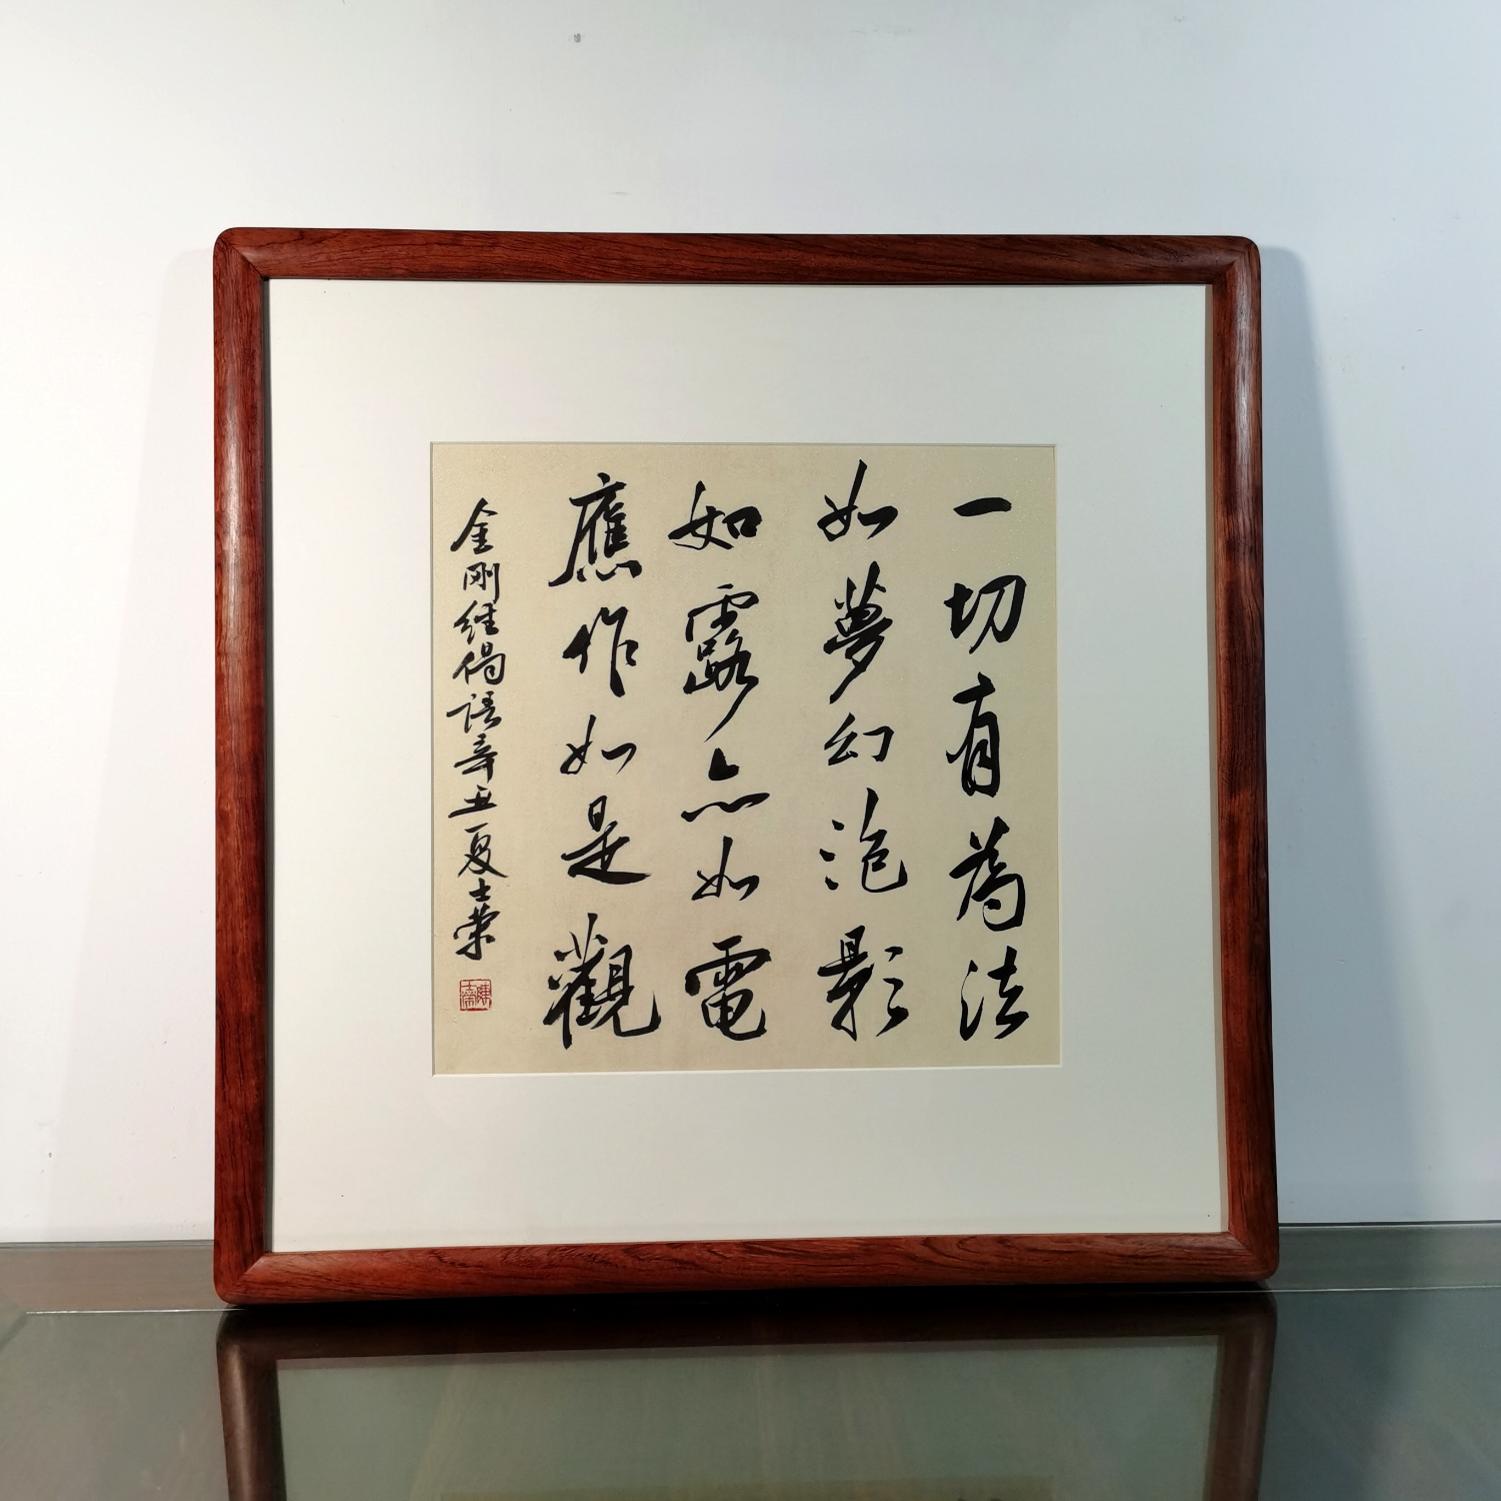 一切有為法
如夢幻泡影
如露亦如電
應作如是觀
金剛经偈语辛丑夏士榮